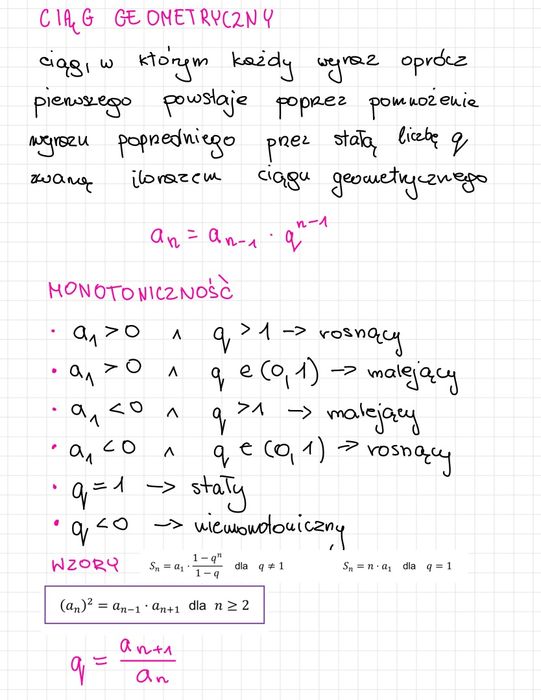 CIĄG GEOMETRYCZNY
ciąg, w którym każdy wyraz oprócz
pierwszego powstaje poprzez pomnożenie
wyrazu poprzedniego przez stałą liczbę q
zwaną ilorazem ciągu geometrycznego
aₙ = aₙ₋₁ · qⁿ⁻¹
MONOTONICZNOŚĆ
• a₁ > 0 ∧ q > 1 –> rosnący
• a₁ > 0 ∧ q e (0, 1) –> malejący
• a₁ < 0 ∧ q > 1 –> malejący
• a₁ < 0 ∧ q e (0, 1) –> rosnący
• q = 1 –> stały
• q < 0 –> niemonotoniczny
WZORY Sₙ = a₁ · (1 − qⁿ)/(1 − q) dla q ≠ 1 Sₙ = n · a₁ dla q = 1
(aₙ)² = aₙ₋₁ · aₙ₊₁ dla n ≥ 2
q = aₙ₊₁/aₙ